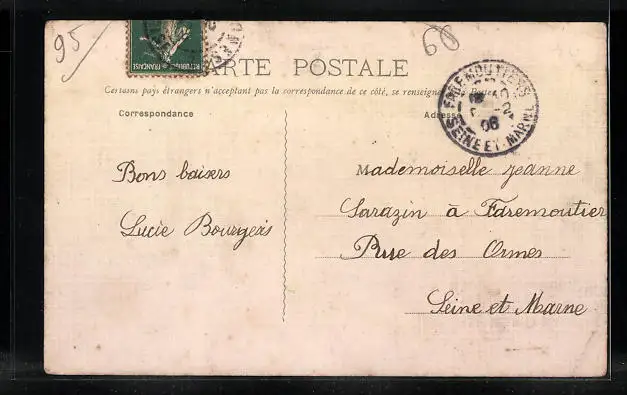 95
60
RÉPUBLIQUE FRANÇAISE
CARTE POSTALE
Certains pays étrangers n'acceptant pas la correspondance de ce côté, se renseigner à la Poste
Correspondance
Adresse
FAREMOUTIERS
06
SEINE ET MARNE
Bons baisers
Lucie Bourgeois
Mademoiselle Jeanne
Sarazin à Faremoutier
Rue des Ormes
Seine et Marne